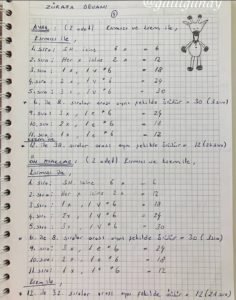 @guligunay
ZÜRAFA DEVAMI
AYAK : (2 adet) Kırmızı ve krem ile,
Kırmızı ile
1. sıra : SH içine 6 x = 6
2. sıra : Her x içine 2 x = 12
3. sıra : 1 x, 1 v * 6 = 18
4. sıra : 2 x, 1 v * 6 = 24
5. sıra : 3 x, 1 v * 6 = 30
* 6. ile 8. sıralar arası aynı şekilde örülür = 30 (3 sıra)
9. sıra : 3 x, 1 e * 6 = 24
10. sıra : 2 x, 1 e * 6 = 18
11. sıra : 1 x, 1 e * 6 = 12
Krem ile
12. ile 38. sıralar arası aynı şekilde örülür = 12
ÖN AYAKLAR : (2 adet) Kırmızı ve krem ile,
Kırmızı ile,
1. sıra : SH içine 6 x = 6
2. sıra : Her x içine 2 x = 12
3. sıra : 1 x, 1 v * 6 = 18
4. sıra : 2 x, 1 v * 6 = 24
5. sıra : 3 x, 1 v * 6 = 30
* 6. ile 8. sıralar arası aynı şekilde örülür = 30 (3 sıra)
9. sıra : 3 x, 1 e * 6 = 24
10. sıra : 2 x, 1 e * 6 = 18
11. sıra : 1 x, 1 e * 6 = 12
Krem ile,
* 12. ile 32. sıralar arası aynı şekilde örülür = 12 (21 sıra)